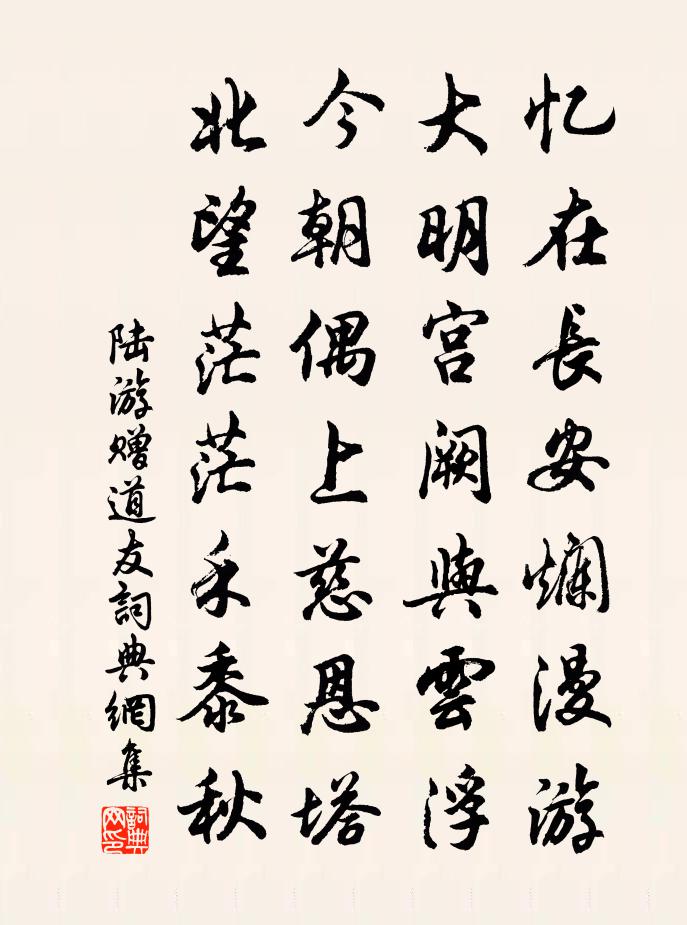 忆在長安爛漫游
大明宫阙與雲浮
今朝偶上慈恩塔
北望茫茫禾黍秋
陆游赠道友詞典網集
詞典
网印